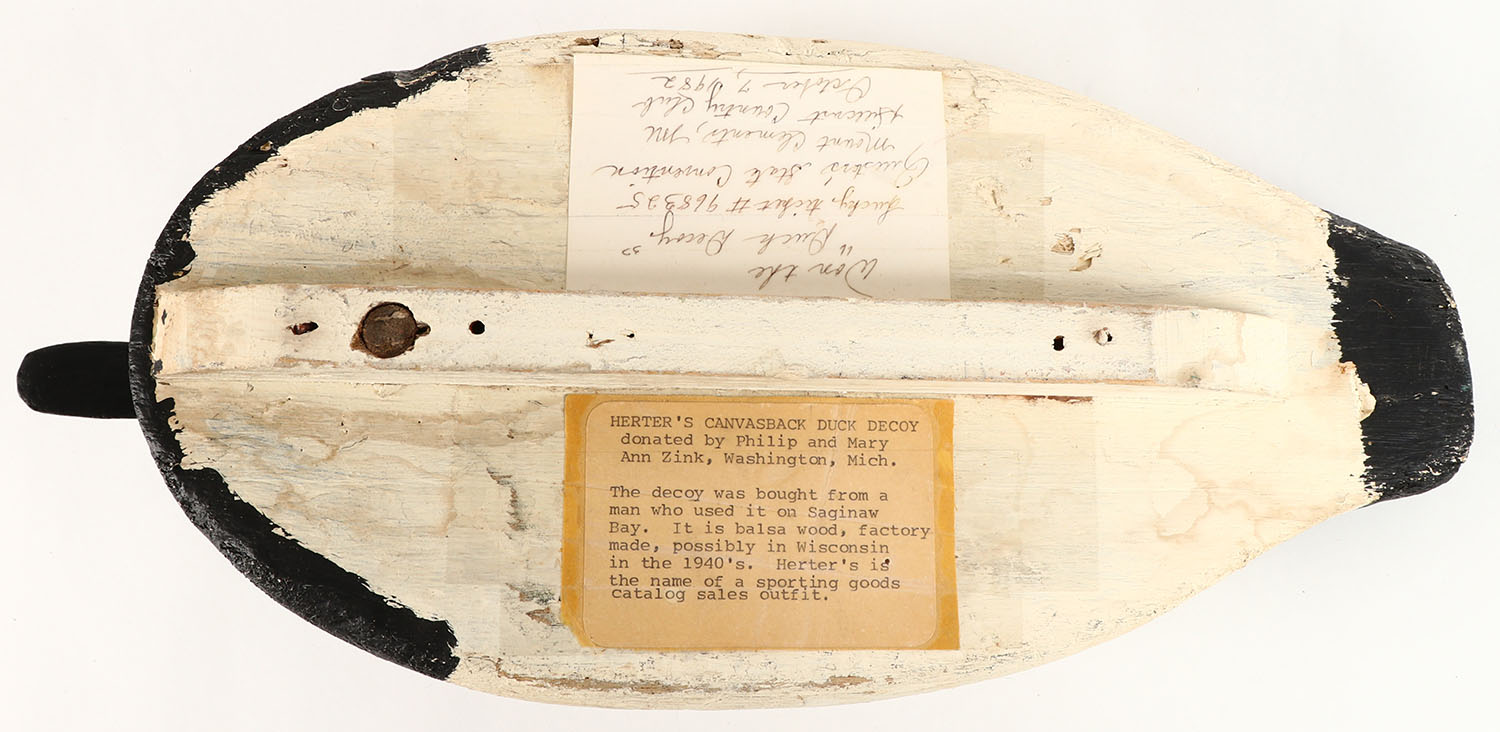 Won the
"Duck Decoy"
Lucky ticket # 968325
Questers' State Convention
Mount Clements, Mi
Hillcrest Country Club
October 7, 1982
HERTER'S CANVASBACK DUCK DECOY
donated by Philip and Mary
Ann Zink, Washington, Mich.
The decoy was bought from a
man who used it on Saginaw
Bay. It is balsa wood, factory
made, possibly in Wisconsin
in the 1940's. Herter's is
the name of a sporting goods
catalog sales outfit.